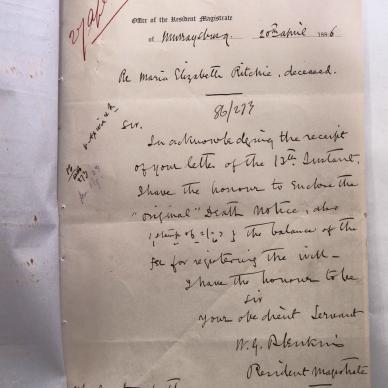 27/4/86
Office of the Resident Magistrate
of Murraysburg, 20th April 1886
Re Maria Elizabeth Ritchie, deceased.
86/273
Sir.
In acknowledging the receipt
of your letter of the 13th Instant,
I have the honour to enclose the
"original" Death Notice, also
the balance of the
fee for registering the will –
I have the honour to be
Sir
Your obedient Servant
Resident Magistrate